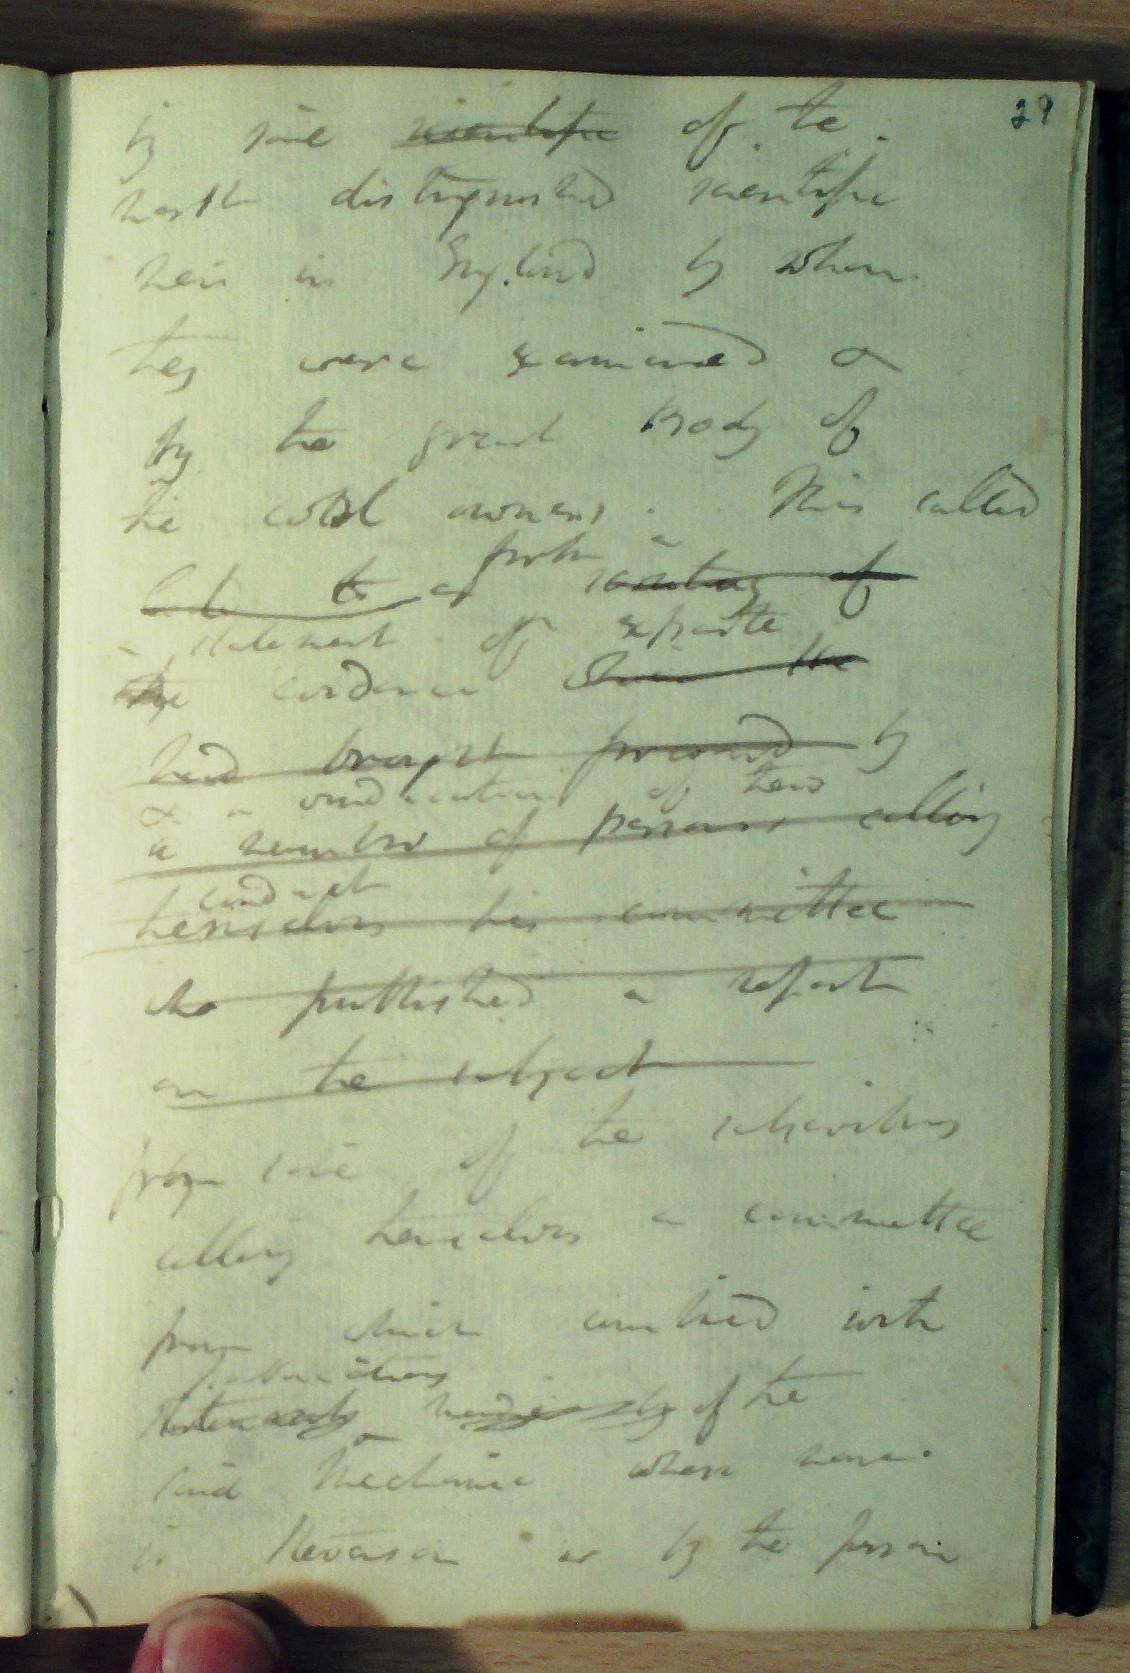 29
by some scientific of the
most distinguished scientific
men in England by whom
they were examined &
by the great body of
the coal owners. This called
forth a
to a meeting of
a statement of exparte
the evidence when the
had brought forward by
& a vindication of their
a number of persons calling
conduct
themselves his committee
who published a report
on the subject
from some of the subscribers
calling themselves a committee
from which combined with
publications
of the
said Mechanic whose name
is Stevenson or by the person